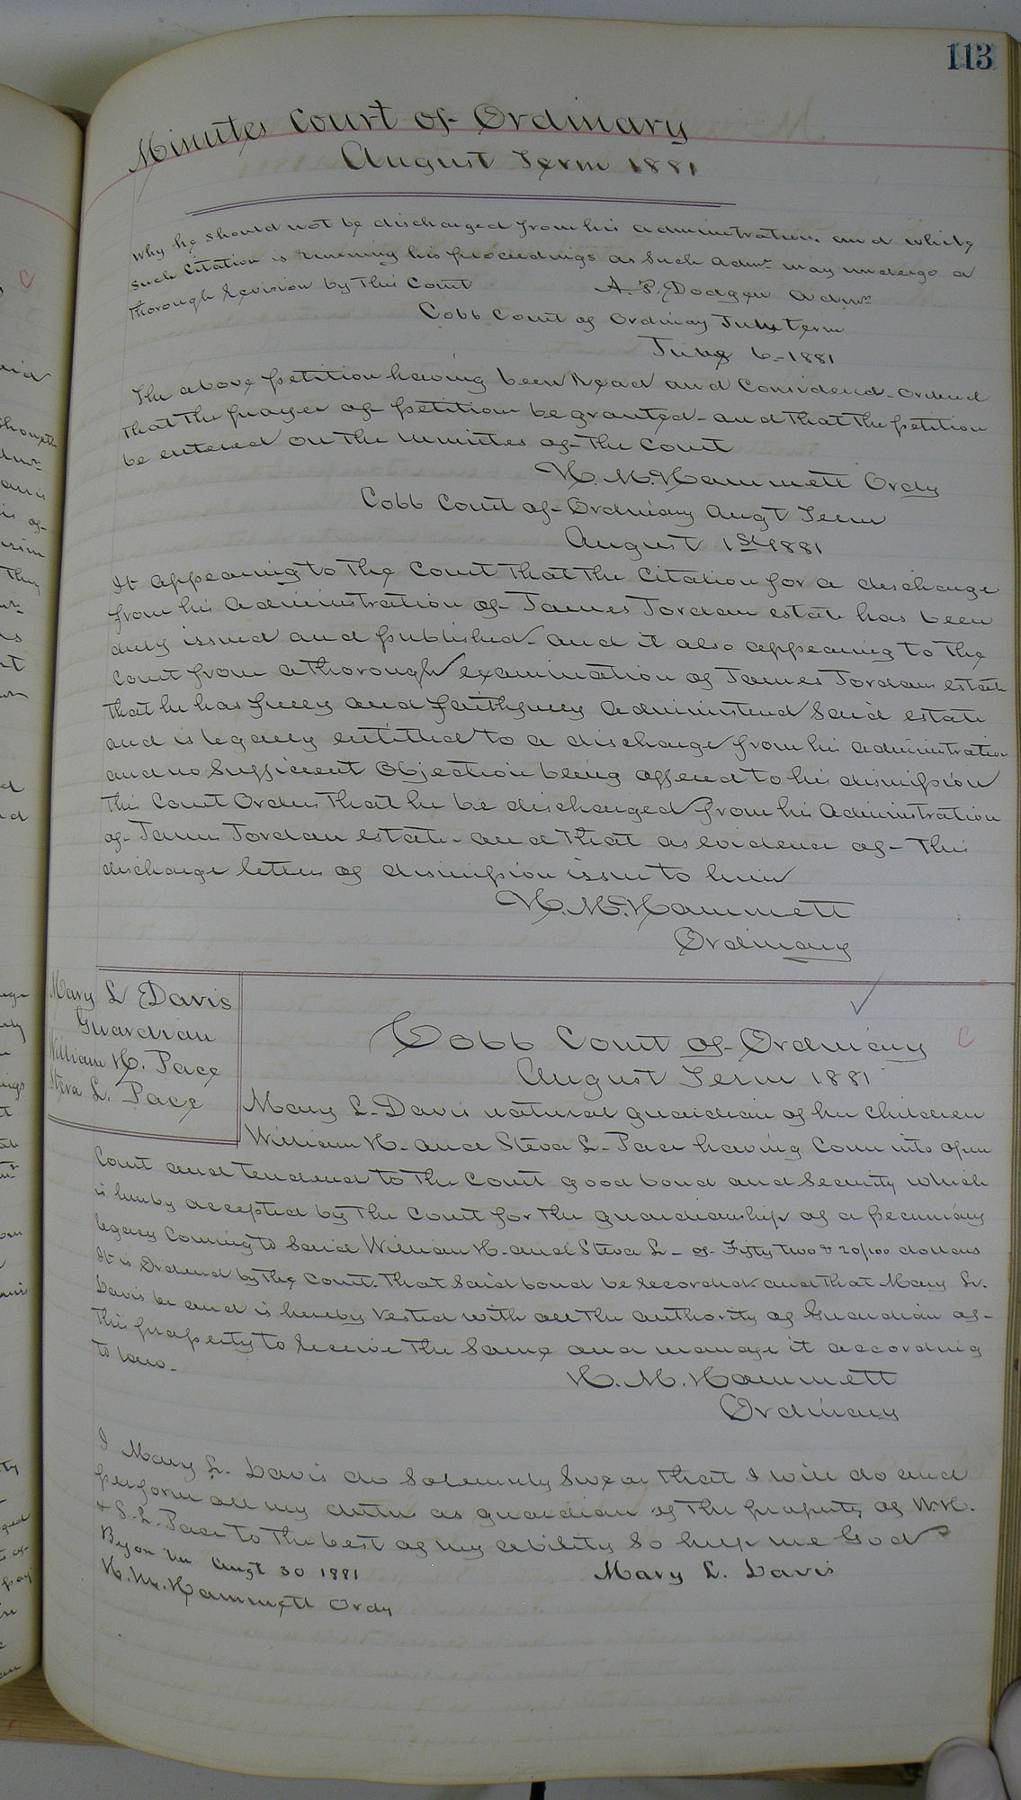 113
Minutes Court of Ordinary
August Term 1881
Why he should not be discharged from his administration and while
such Citation is running his proceedings as such admr may undergo a
thorough revision by this Court
A. P. Dodgen Admr
Cobb Court of Ordinary July term
July 6-1881
The above petition having been Read and Considerd. Orderd
that the prayer of petition be granted - and that the petition
be entered on the minutes of the Court
H. M. Hammett Ordy
Cobb Court of Ordinary Augt Term
August 1st 1881
It appearing to the Court that the Citation for a discharge
from his administration of James Jordan estate has been
duly issued and published - and it also appearing to the
Court from a thorough examination of James Jordan estate
that he has fully and faithfully Administerd Said estate
and is legally entitled to a discharge from his administration
and no Sufficient Objection being offerd to his dismission
this Court Orders that he be discharged from his Administration
of James Jordan estate - and that as evidence of this
discharge letters of dismission issue to him
H. M. Hammett
Ordinary
Mary L Davis
Guardian
William H. Pace
Steva L. Pace
C
Cobb Court of Ordinary
August Term 1881
Mary L. Davis natural guardian of her Children
William H. and Steva L. Pace having Come into open
Court and tenderd to the Court good bond and Security which
is hereby accepted by the Court for the guardianship of a pecuniary
legacy Coming to Said William H. and Steva L - of Fifty two & 20/100 dollars
It is Orderd by the Court. that Said bond be recorded and that Mary L.
Davis be and is hereby Vested with all the authority of Guardian of
this property to receive the Same and manage it according
to law.
H. M. Hammett
Ordinary
I Mary L. Davis do Solemnly Swear that I will do and
perform all my duties as guardian of the property of W.H.
& S. L. Pace to the best of my ability So help me God
Before me Augt 30 1881
Mary L. Davis
H. M. Hammett Ordy